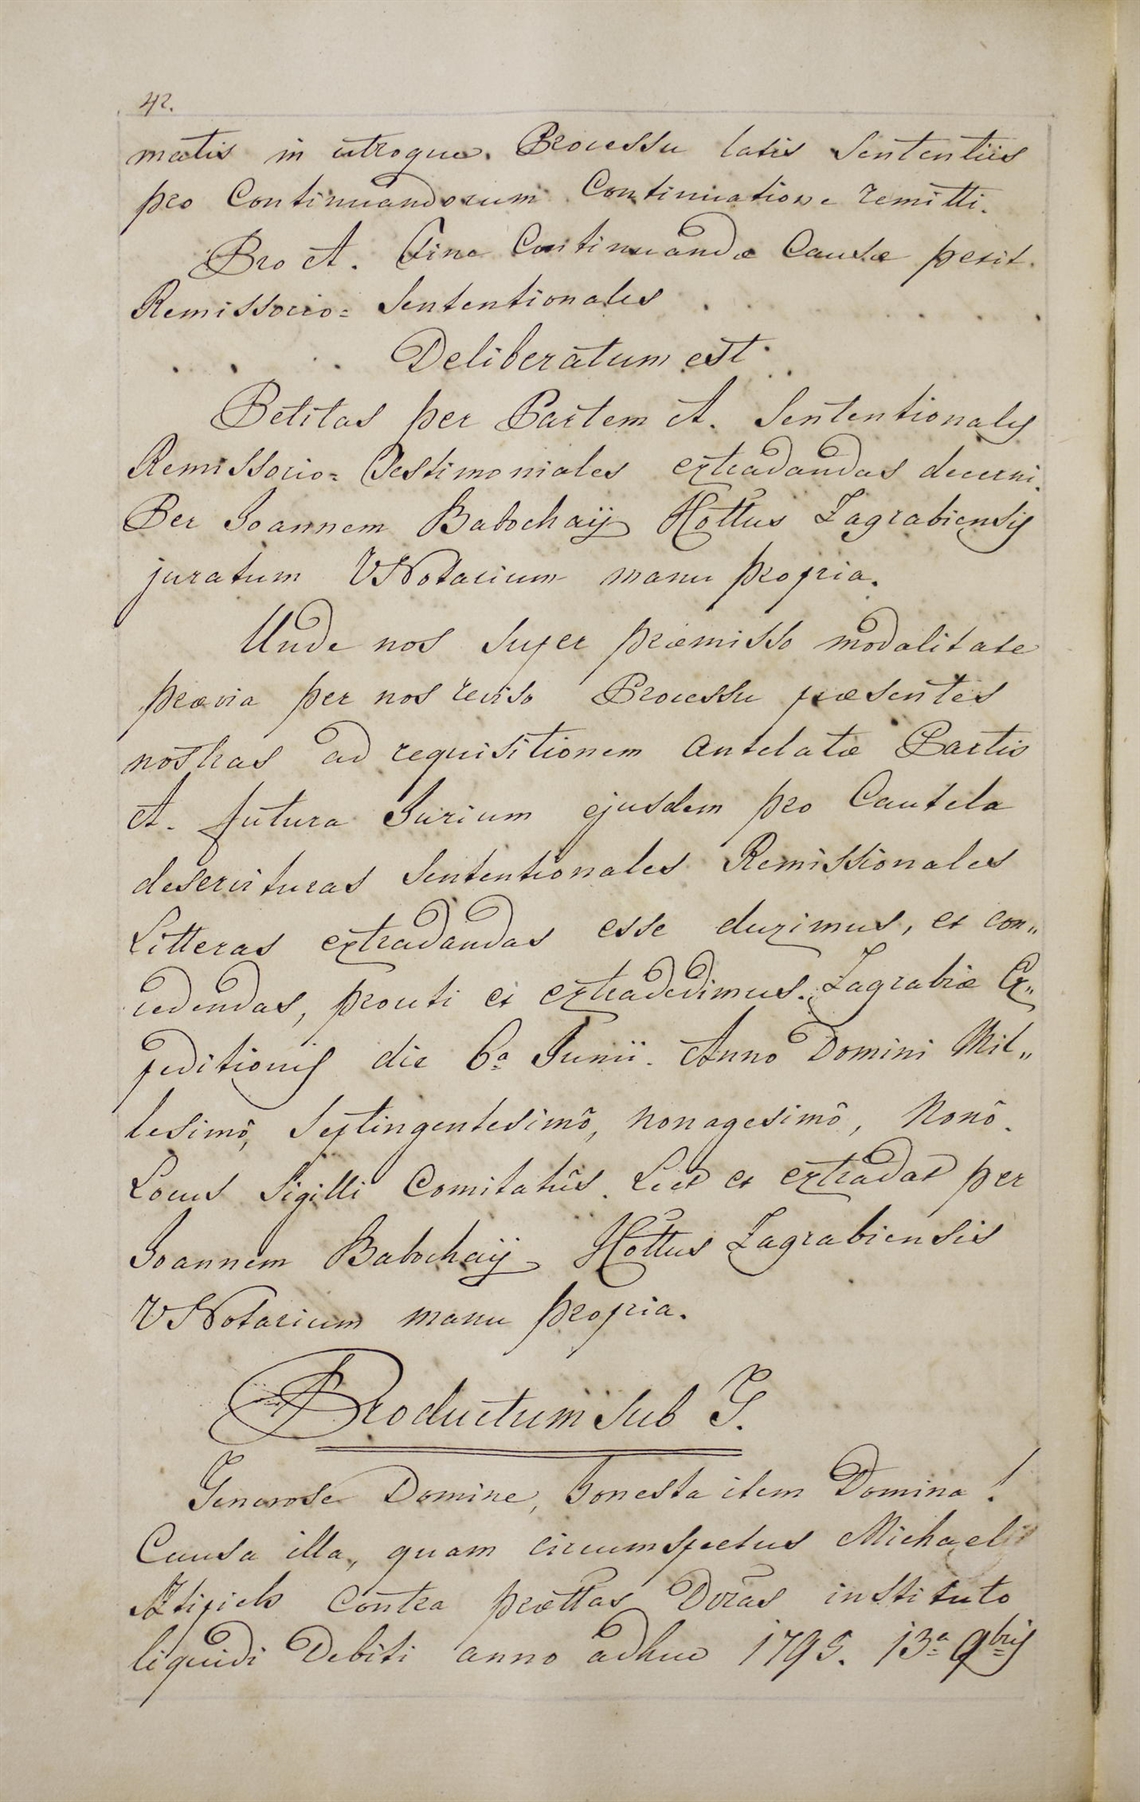 42.
matis in utroque Processu latis Sententiis
pro Continuandorum Continuatione remitti.
Pro A. Fine Continuandæ Causæ petit
Remissorio= Sententionales
Deliberatum est.
Petitas per Partem A. Sententionales
Remissorio= Testimoniales extradandas decerni.
Per Joannem Babochaÿ I Cottus Zagrabiensis
juratum VNotarium manu propria.
Unde nos super præmisso modalitate
prævia per nos reviso Processu præsentes
nostras ad requisitionem antelatæ Partis
A. futura Jurium ejusdem pro Cautela
deservituras Sententionales Remissionales
Litteras extradandas esse duximus, et con„
cedendas, prouti et extradedimus. Zagrabiæ Ex„
peditionis die 6a Junii. Anno Domini Mil„
lesimô, Septingentesimô, nonagesimô, Nonô.
Locus Sigilli Comitatûs. Lect et extradat per
Joannem Babochaÿ I Cottus Zagrabiensis
VNotarium manu propria.
Productum sub G.
Generose Domine, honesta item Domina!
Causa illa, quam circumspectus Michael
contra prættas Dvras instituto
liquidi Debiti anno adhuc 1795. 13a 9bris